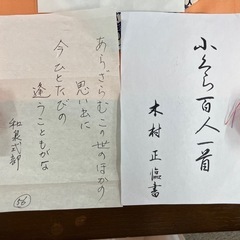 小くら百人一首
木村 正臨書
あらざらむこの世のほかの
思い出に
今ひとたびの
逢うこともがな
和泉式部
56